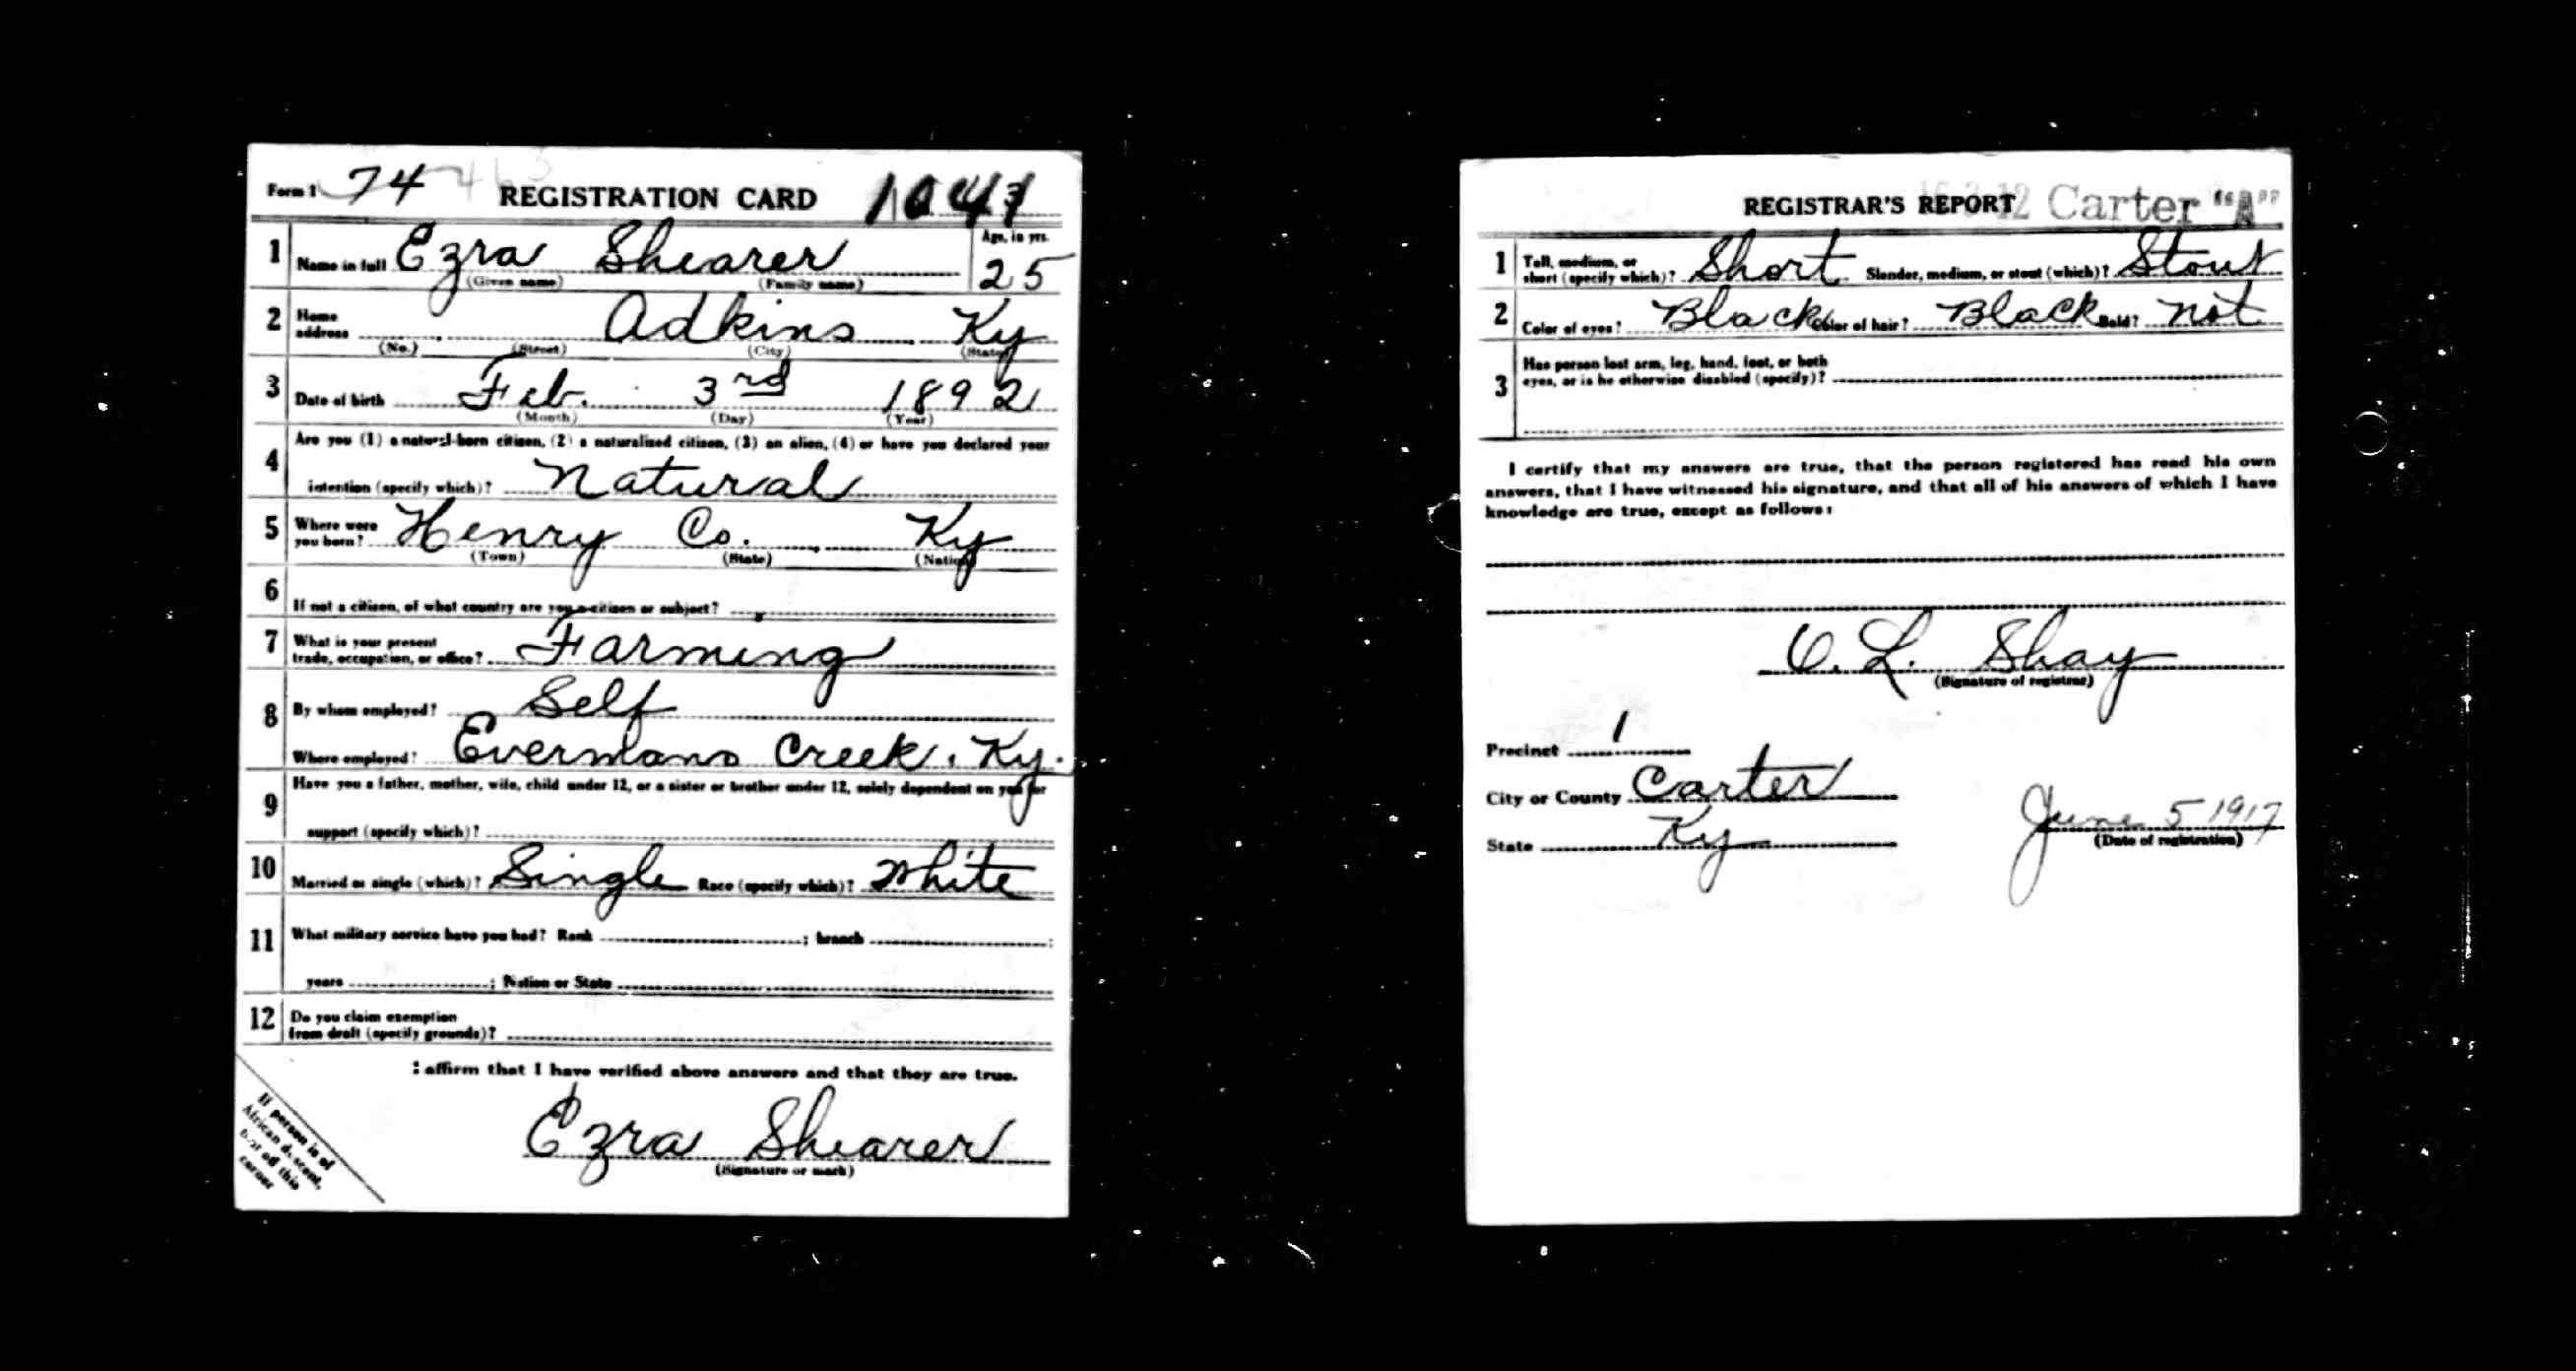 Form 1 74 REGISTRATION CARD
1 Name in full Ezra Shearer Age, in yrs. 25
(Given name) (Family name)
2 Home address Adkins Ky
(No.) (Street) (City) (State)
3 Date of birth Feb. 3rd 1892
(Month) (Day) (Year)
4 Are you (1) a natural-born citizen, (2) a naturalized citizen, (3) an alien, (4) or have you declared your
intention (specify which)? Natural
5 Where were you born? Henry Co. Ky
(Town) (State) (Nation)
6 If not a citizen, of what country are you a citizen or subject?
7 What is your present trade, occupation, or office? Farming
8 By whom employed? Self
Where employed? Evermans Creek, Ky.
9 Have you a father, mother, wife, child under 12, or a sister or brother under 12, solely dependent on you for
support (specify which)?
10 Married or single (which)? Single Race (specify which)? White
11 What military service have you had? Rank ; branch ;
years ; Nation or State
12 Do you claim exemption
from draft (specify grounds)?
I affirm that I have verified above answers and that they are true.
Ezra Shearer
(Signature or mark)
If person is of
African descent,
tear off this
corner
REGISTRAR'S REPORT Carter "A"
1 Tall, medium, or short (specify which)? Short Slender, medium, or stout (which)? Stout
2 Color of eyes? Black Color of hair? Black Bald? not
3 Has person lost arm, leg, hand, foot, or both
eyes, or is he otherwise disabled (specify)?
I certify that my answers are true, that the person registered has read his own
answers, that I have witnessed his signature, and that all of his answers of which I have
knowledge are true, except as follows:
L. Shay
(Signature of registrar)
Precinct 1
City or County Carter
State Ky
June 5 1917
(Date of registration)